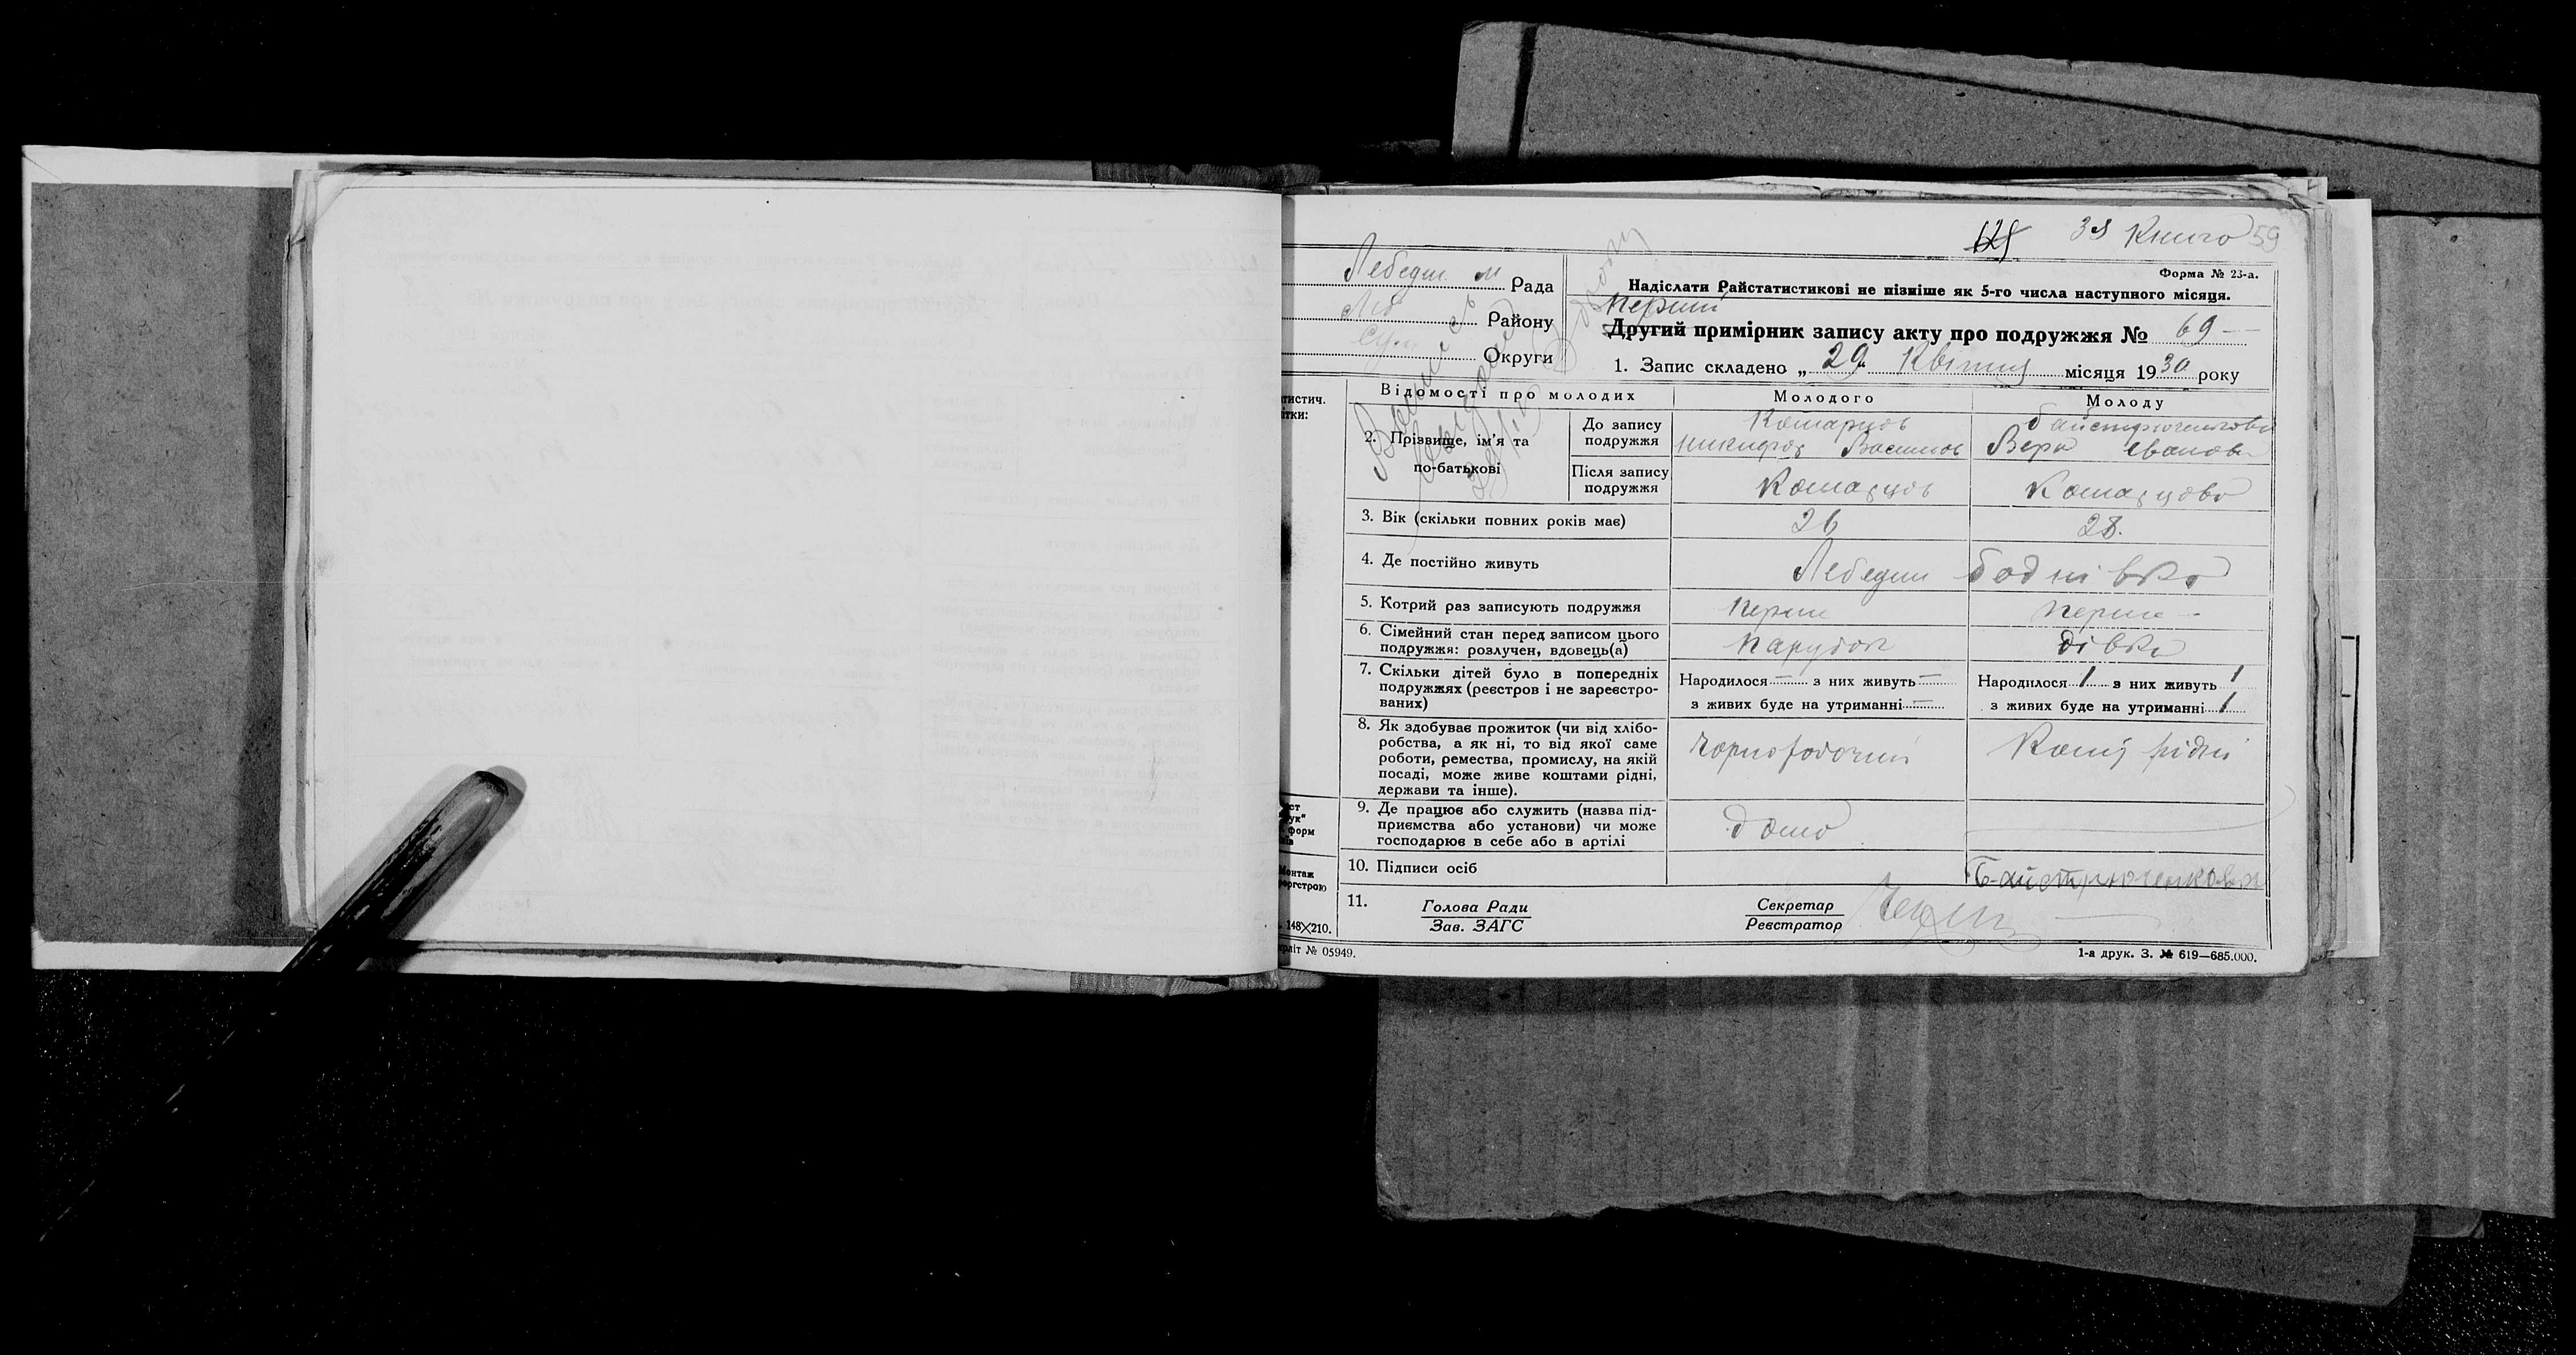 125 38 Книго 59
Форма № 23-а.
Лебедин м Рада
Леб Району
Сум Округи
Надіслати Райстатистикові не пізніше як 5-го числа наступного місяця.
Перший
Другий примірник запису акту про подружжя № 69
1. Запис складено „29" Квітня місяця 1930 року
Відомості про молодих Молодого Молоду
2. Прізвище, ім'я та по-батькові
До запису подружжя
Комарцов
Никифор Васильов Вера Іванова
Після запису подружжя
Комарцов Комарцова
3. Вік (скільки повних років має) 26 28.
4. Де постійно живуть Лебедин
5. Котрий раз записують подружжя перше перше
6. Сімейний стан перед записом цього
подружжя: розлучен, вдовець(а) парубок дівка
7. Скільки дітей було в попередніх
подружжях (реєстров і не зареєстро-
ваних)
Народилося — з них живуть —
з живих буде на утриманні —
Народилося 1 з них живуть 1
з живих буде на утриманні 1
8. Як здобуває прожиток (чи від хлібо-
робства, а як ні, то від якої саме
роботи, ремества, промислу, на якій
посаді, може живе коштами рідні,
держави та інше).
чорноробочий Кошт рідні
9. Де працює або служить (назва під-
приємства або установи) чи може
господарює в себе або в артілі
дома
10. Підписи осіб Байстрюченкова
11. Голова Ради
Зав. ЗАГС
Секретар
Реєстратор
148×210.
№ 05949.
1-а друк. З. № 619—685.000.